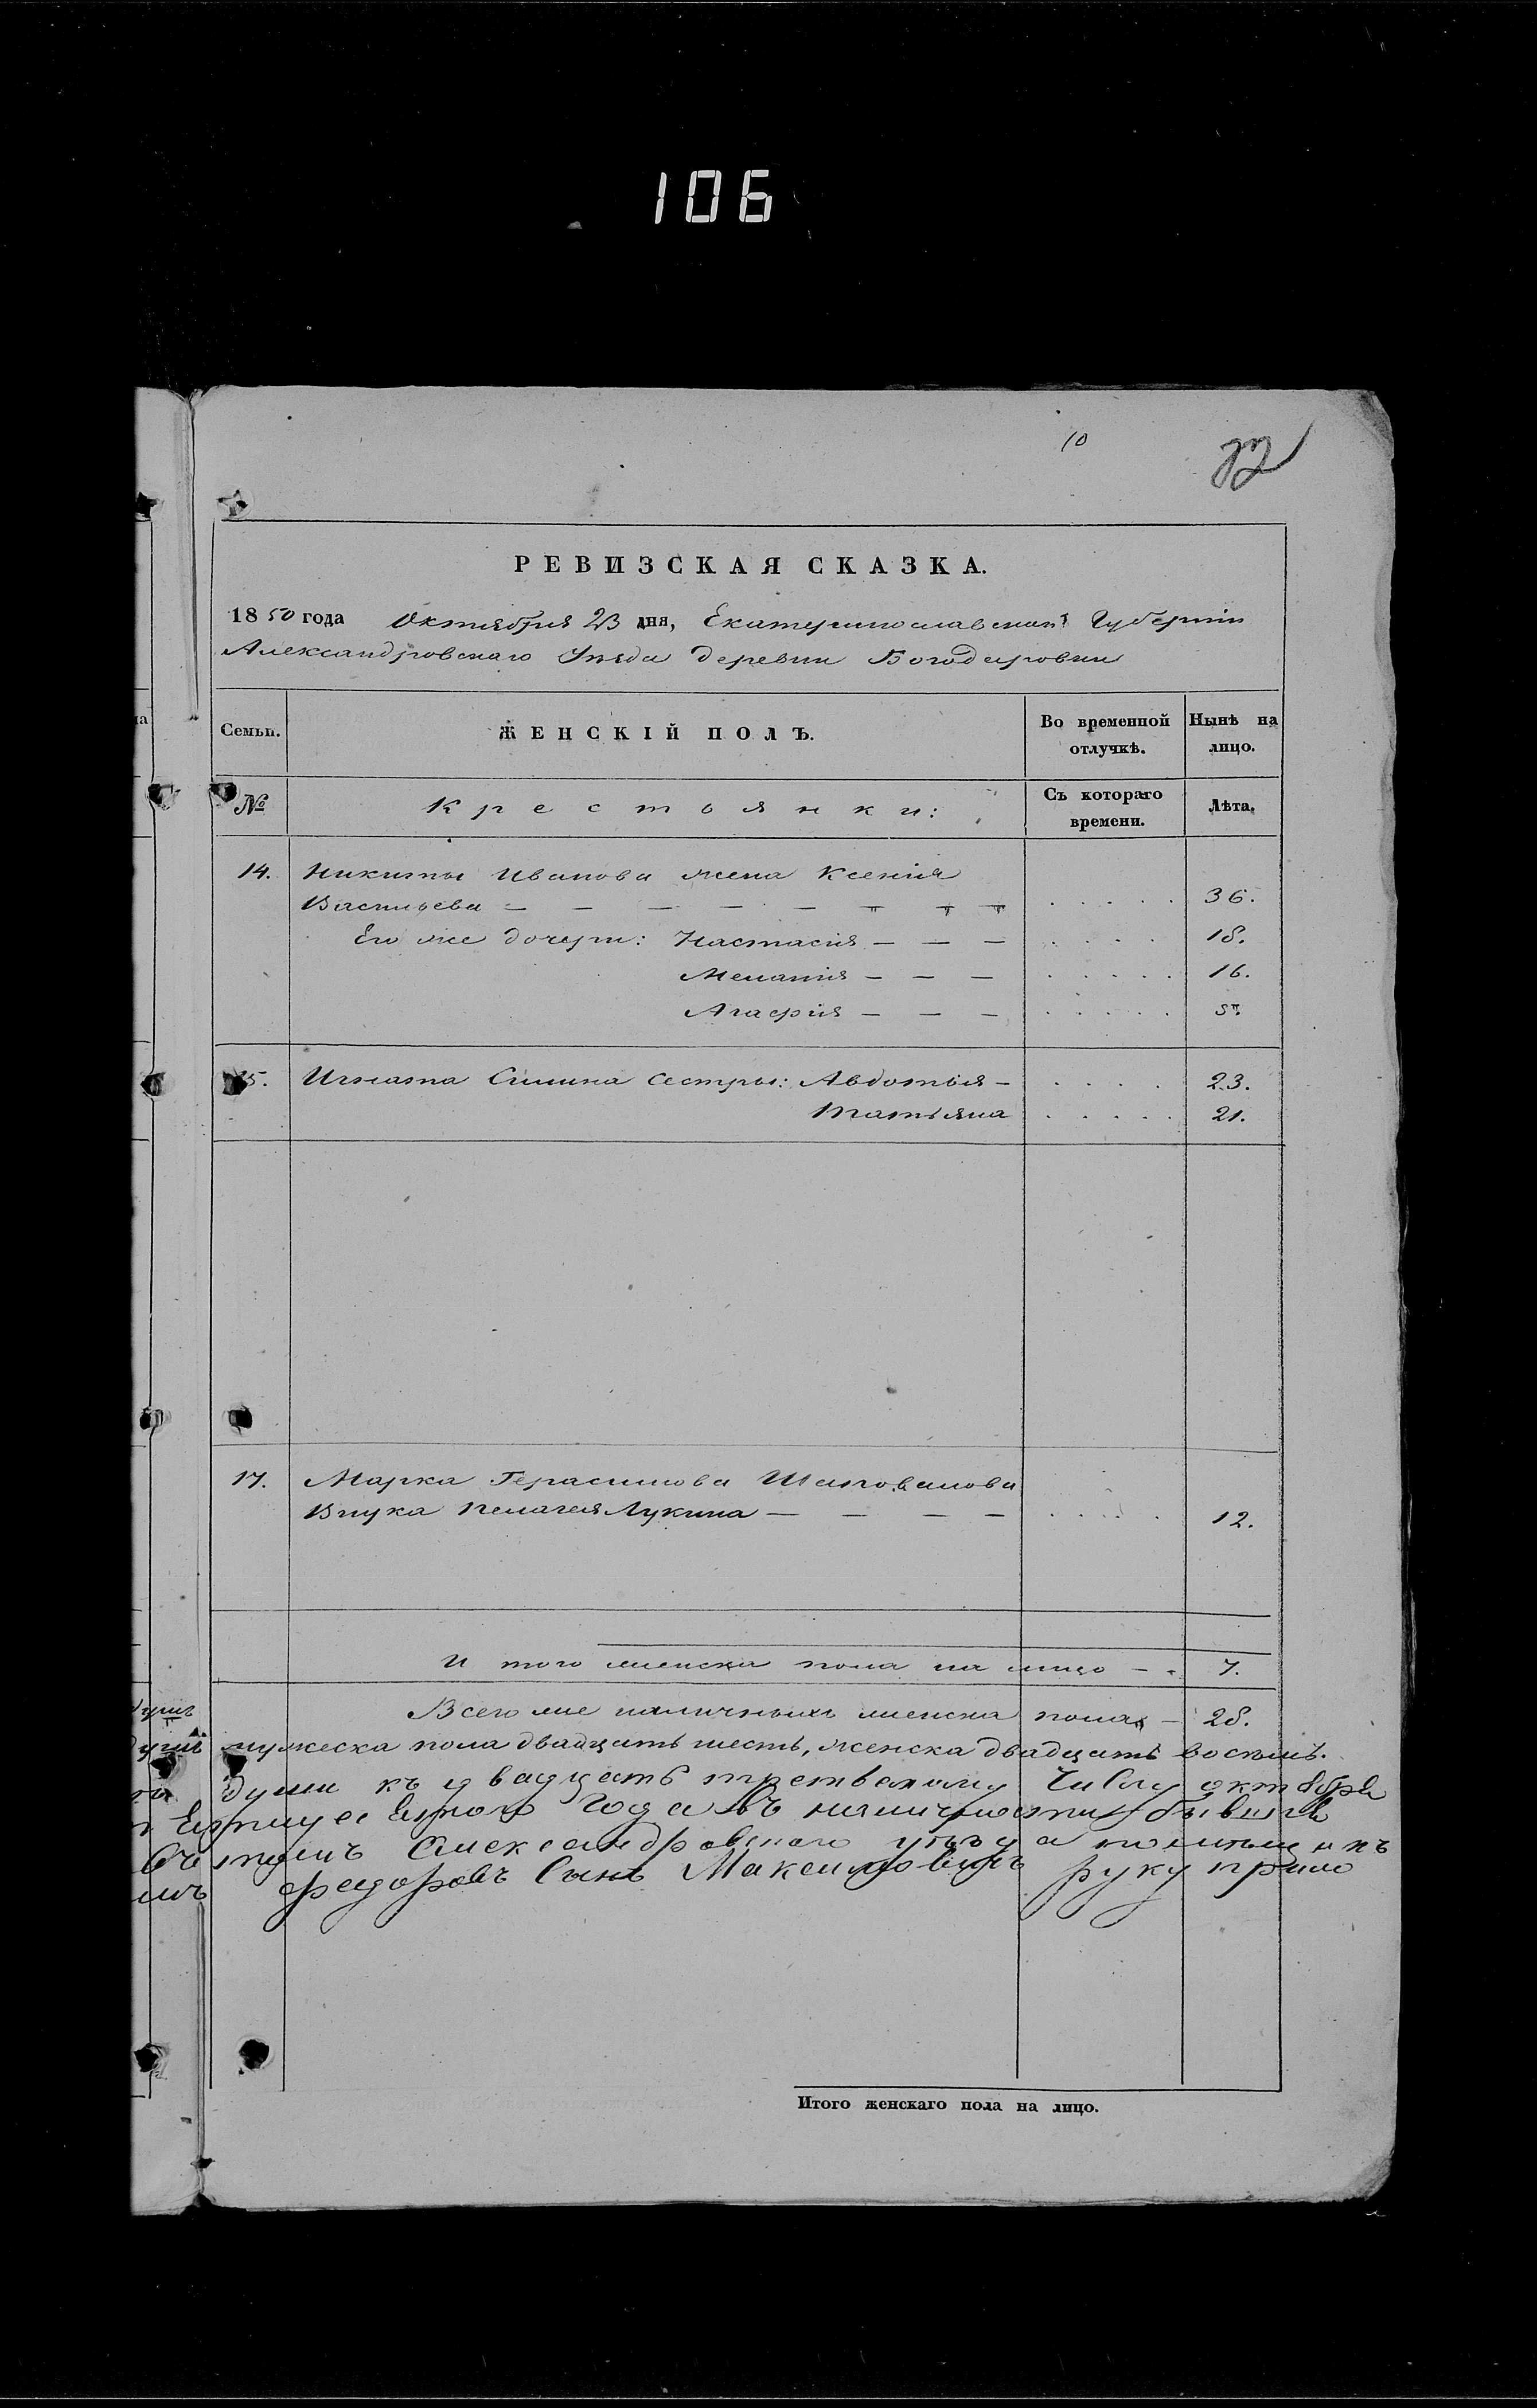 106
10
22
РЕВИЗСКАЯ СКАЗКА.
1850 года Октября 23 дня, Екатеринославской Губернии
Александровскаго Уезда деревни Богодаровки
Семьи. ЖЕНСКІЙ ПОЛЪ. Во временной отлучкѣ. Нынѣ на лицо.
№ Крестьянки: Съ котораго времени. Лѣта.
14. Никиты Иванова жена Ксенія
Васильева — — — — — — — — . . . . . 36.
Его же дочери: Настасія — — — . . . . 18.
Меланія — — — . . . . . 16.
Агафія — — — . . . . . 5.
15. Игната Силина сестры: Авдотья — . . . . 23.
Татьяна . . . . . 21.
17. Марка Герасимова Шаповалова
Внука Пелагея Лукина — — — — . . . . . 12.
И того женска пола на лицо — 7.
Всего же наличныхъ женска пола — 28.
душъ
мужеска пола двадцать шесть, женска двадцать восемь.
души къ двадцать третьему числу октебря
года въ наличности бывшія
Александровскаго уезда помещикъ
федоровъ Сынъ Максимовичъ руку прило
Итого женскаго пола на лицо.